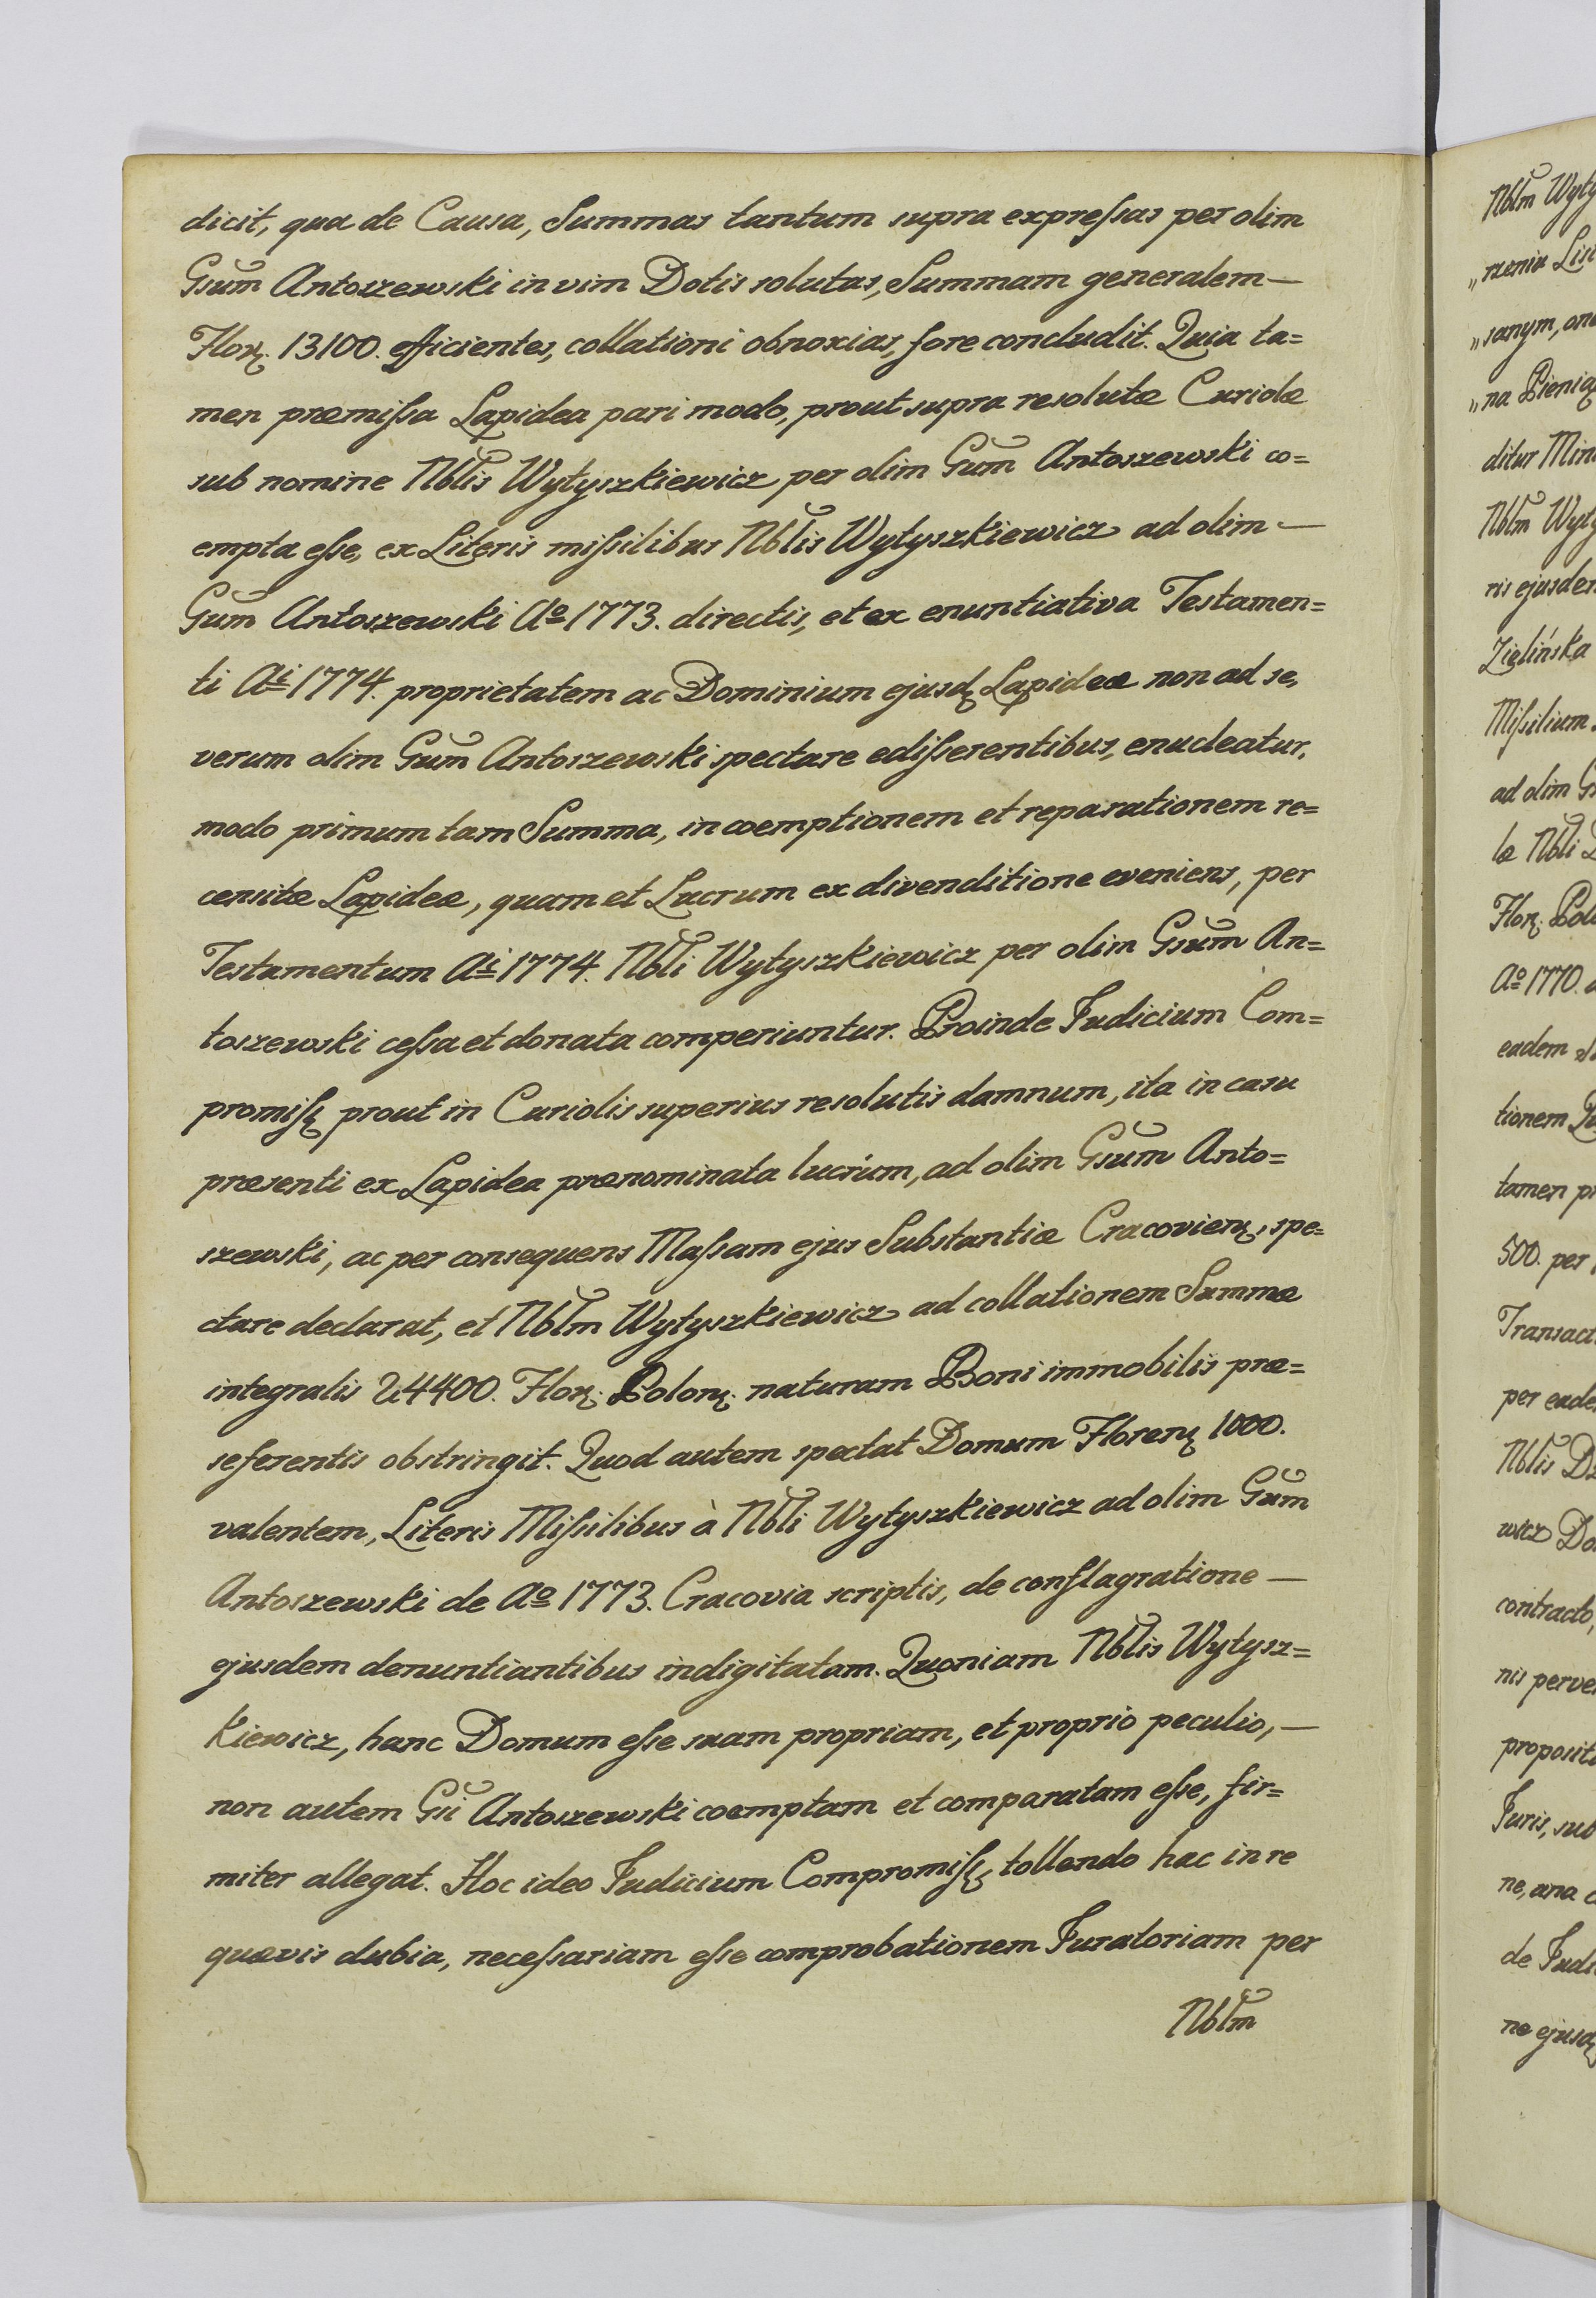 dicit, qua de Causa, Summas tantum supra expreſsas per olim
Gsum Antoszewski in vim Dotis solutas, Summam generalem —
Flor. 13100. efficientes, collationi obnoxias, fore concludit. Quia ta=
men præmiſsa Lapidea pari modo, prout supra resolutæ Curiolæ
sub nomine Nblis Wytyszkiewicz per olim Gsum Antoszewski co=
empta eſse, ex Literis miſsilibus Nblis Wytyszkiewicz ad olim —
Gsum Antoszewski Aº 1773. directis, et ex enuntiativa Testamen=
ti Ai 1774. proprietatem ac Dominium ejusd Lapideæ non ad se,
verum olim Gsum Antoszewski spectare ediſserentibus, enucleatur,
modo primum tam Summa, in coemptionem et reparationem re=
censitæ Lapideæ, quam et Lucrum ex divenditione eveniens, per
Testamentum Ai 1774. Nbli Wytyszkiewicz per olim Gsum An=
toszewski ceſsa et donata comperiuntur. Proinde Judicium Com=
promiſs prout in Curiolis superius resolutis damnum, ita in casu
præsenti ex Lapidea prænominata lucrum, ad olim Gsum Anto=
szewski, ac per consequens Maſsam ejus Substantiæ Cracovien, spe=
ctare declarat, et Nblm Wytyszkiewicz ad collationem Summæ
integralis 24400. Flor. Polon. naturam Boni immobilis præ=
seferentis obstringit. Quod autem spectat Domum Floren 1000.
valentem, Literis Miſsilibus à Nbli Wytyszkiewicz ad olim Gsum
Antoszewski de Aº 1773. Cracovia scriptis, de conflagratione —
ejusdem denuntiantibus indigitatam. Quoniam Nblis Wytysz=
kiewicz, hanc Domum eſse suam propriam, et proprio peculio, —
non autem Gsi Antoszewski coemptam et comparatam eſse, fir=
miter allegat. Hoc ideo Judicium Compromiſs, tollendo hac in re
quævis dubia, neceſsariam eſse comprobationem Juratoriam per
Nblm
Nblm Wyty
„rzenia List
„sanym, on
„na Pienią
ditur Min
Nblm Wyty
ris ejusdem
Zielińska
Miſsilium
ad olim G
læ Nbli
Flor. Pol
Aº 1770.
eadem
tionem
tamen pr
500. per
Transact
per eade
Nblis D
wicz Do
contracto,
nis perve
proposit
Juris, sub
ne, una
de Judi
ne ejusd